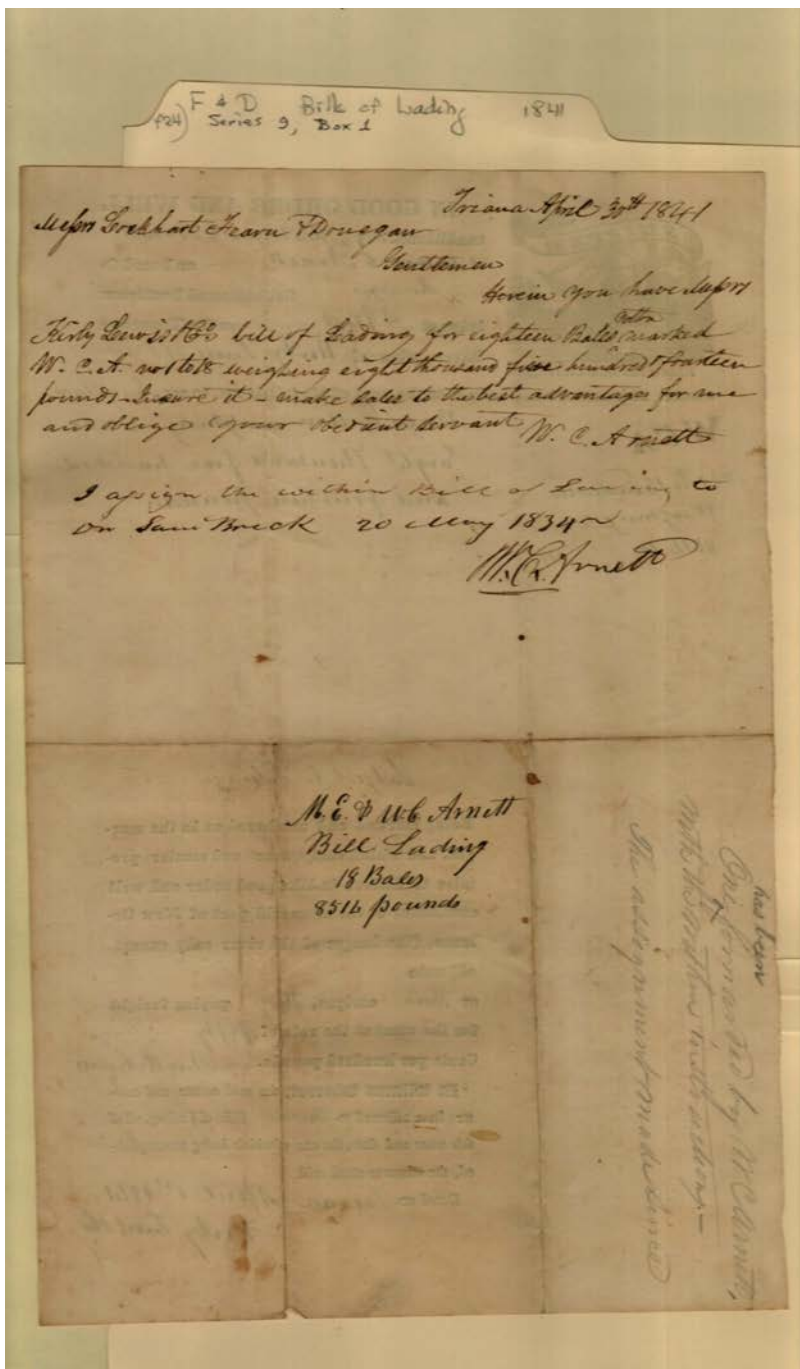 F & D Bills of Lading 1841
(f24) Series 9, Box 1
Triana April 30th 1841
Messrs Lockhart Fearn & Donegan
Gentlemen
Herein you have Messrs
Kirby Lewis & Co bill of Lading for eighteen Bales Cotton marked
W. C. A. no 1 to 18 weighing eight thousand five hundred & fourteen
pounds - Insure it - make sales to the best advantage for me
and oblige your obedient servant W. C. Arnett
I assign the within Bill of Lading to
Saml Breck 20 May 1834
W. C. Arnett
M. E. & W C Arnett
Bill Lading
18 Bales
8514 pounds
has been
One forwarded by W C Arnett,
with his instructions -
the assignment made since